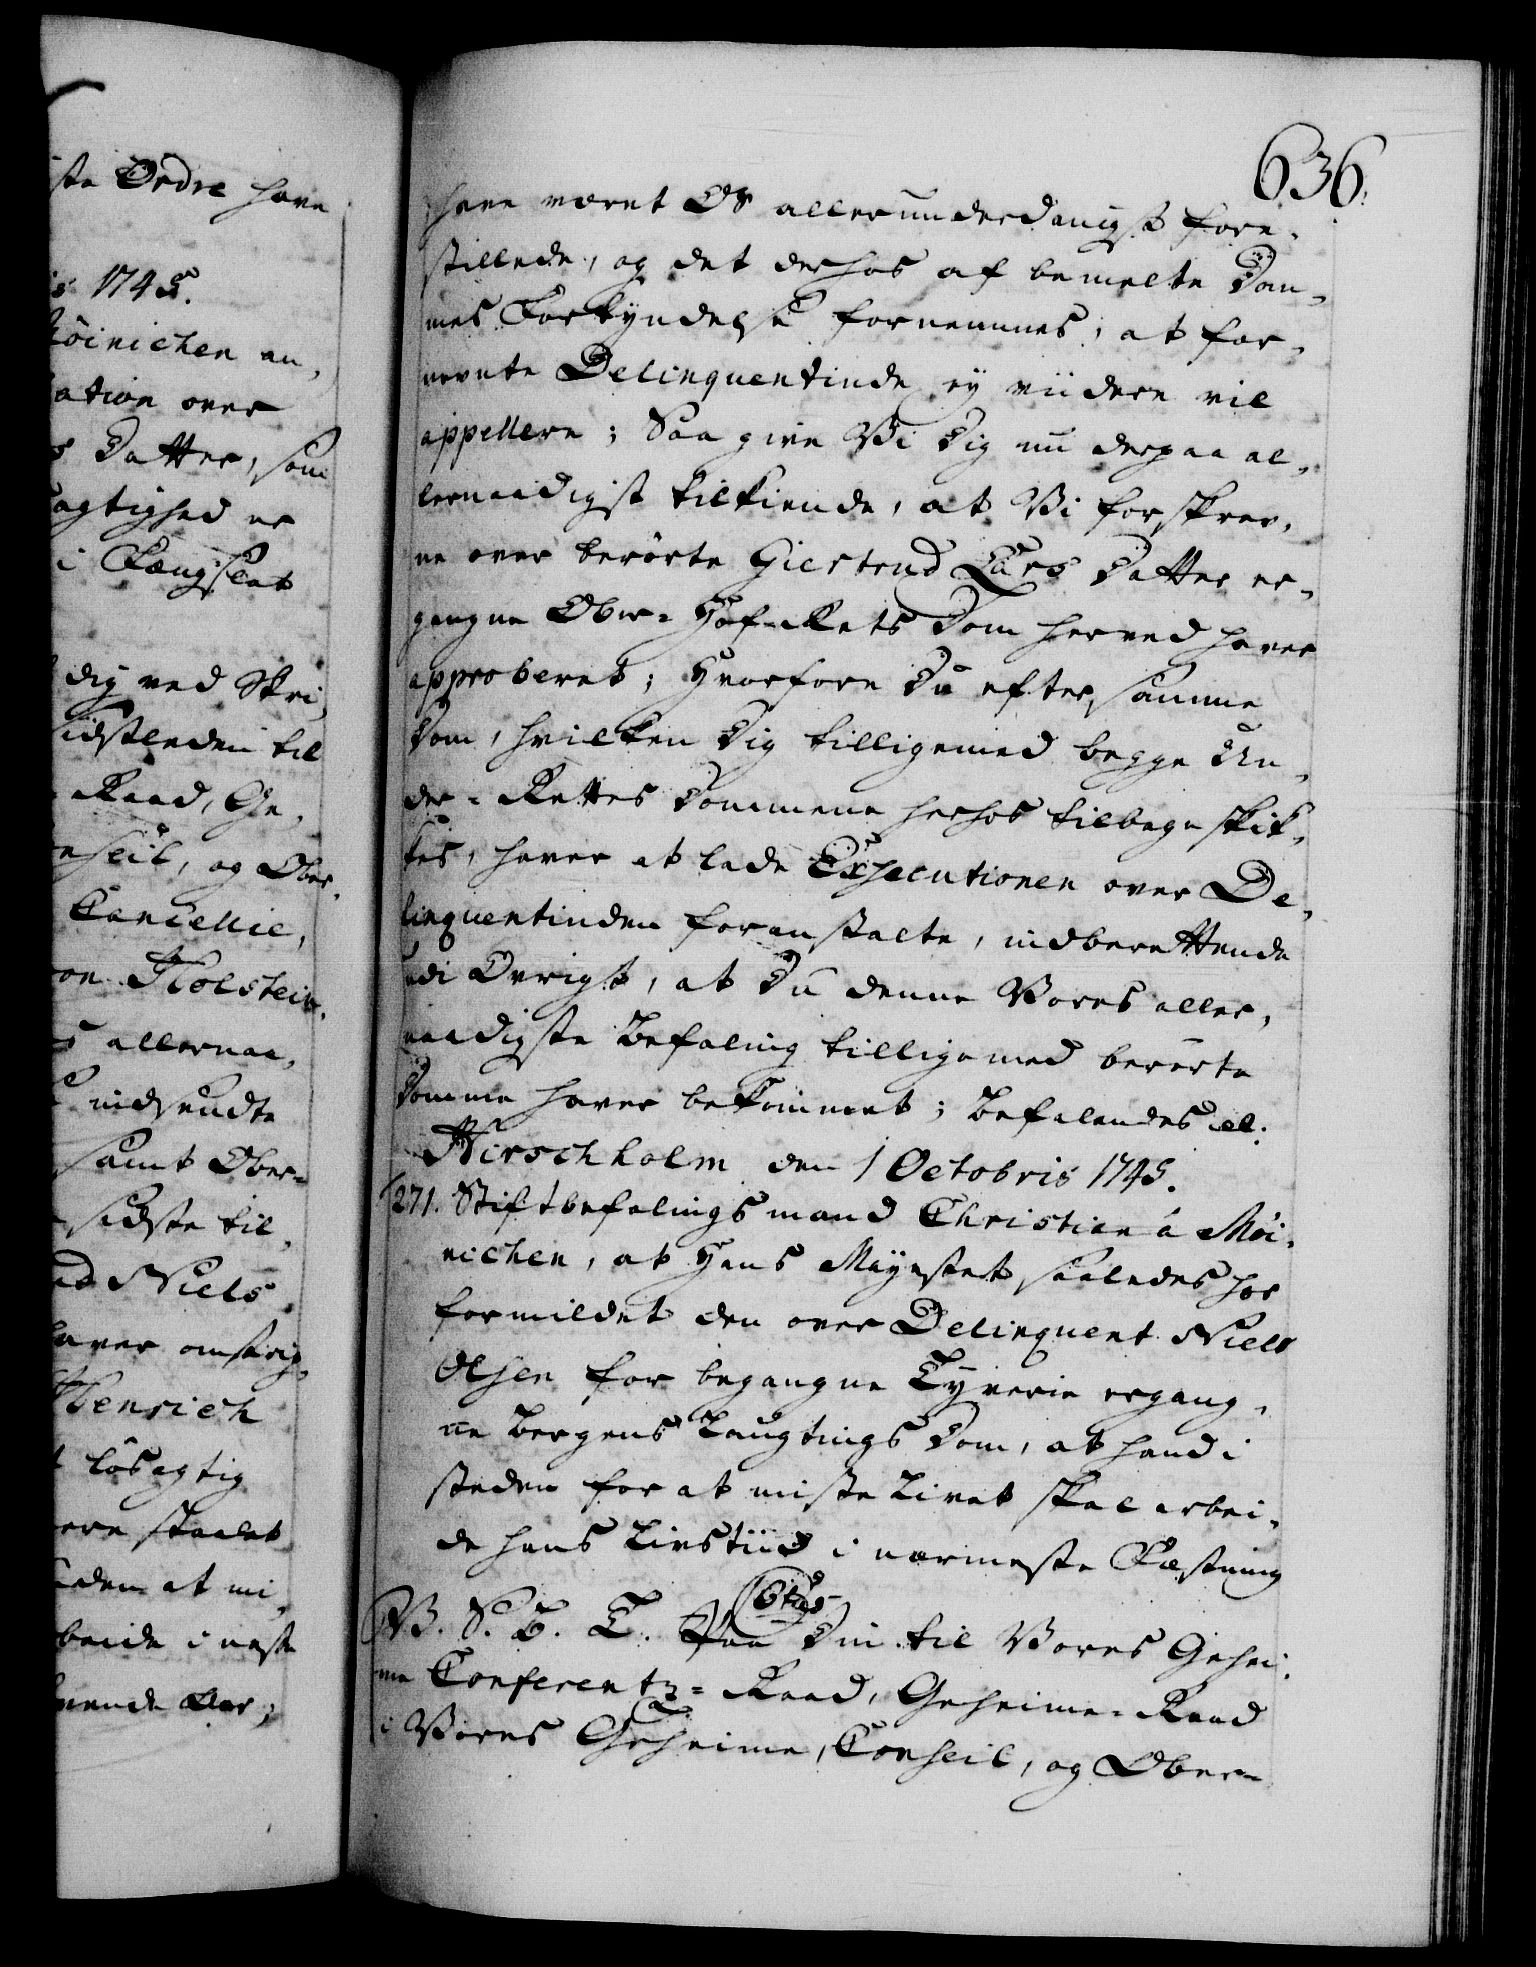 ste Ordre have
1745.
öinichen an,
ation over
Datter, som
agtighed er
i Fængslet
dig ved Skri
sidstleden til
Raad, Ge,
nseil, og Ober,
Cancellie,
Holstein.
allernaa,
indsendte
samt Ober-
sidste til,
Niels
haver
Henrich
lösagtig
ere
at mi,
beide i neste
Aar;
636.
have været Os allerunderdanigst fore,
stillede, og det derhos af bemelte Dom,
mes Forkyndelse fornemmes, at for,
nevnte Delinquentinde ey viidere vil
appellere; Saa give Vi Dig nu derpaa al,
lernaadigst tilkiende, at Vi forskrev,
ne over berörte Giertrud Lars Datter er,
gangne Ober-Hof-Rets Dom herved haver
approberet; Hvorfore Du efter samme
Dom, hvilken Dig tilligemed begge Un,
der-Rettes Dommene herhos tilbage skik,
kes, haver at lade Executionen over De,
linquentinden foranstalte, indberettende
udi Övrigt, at Du denne Vores aller,
naadigste Befaling tilligemed berörte
Domme haver bekommet; Befalendes al:
Hirschholm den 1 Octobris 1745.
271. Stiftbefalingsmand Christian á Möi,
nichen, at Hans Mayestet saaledes har
formildet den over Delinquent Niels
Olsen for begangne Tyverie ergang,
ne Bergens Laugtings Dom, at hand i
steden for at miste Livet skal arbei,
de hans Livstiid i nærmeste Fæstning
V. S. B. T. Paa Din til Vores Gehei,
me Conferentz-Raad, Geheime-Raad
i Vores Geheime Conseil, og Ober-